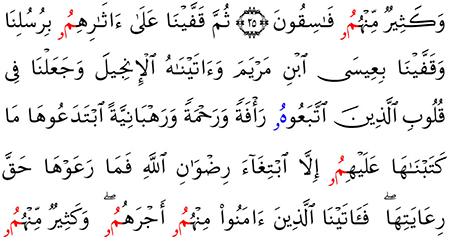 وَكَثِيرٌ مِّنْهُمُۥ فَٰسِقُونَ ﴿٢٥﴾ ثُمَّ قَفَّيْنَا عَلَىٰ ءَاثَٰرِهِمُۥ بِرُسُلِنَا
وَقَفَّيْنَا بِعِيسَى ٱبْنِ مَرْيَمَ وَءَاتَيْنَٰهُ ٱلْإِنجِيلَ وَجَعَلْنَا فِى
قُلُوبِ ٱلَّذِينَ ٱتَّبَعُوهُۥ رَأْفَةً وَرَحْمَةً وَرَهْبَانِيَّةً ٱبْتَدَعُوهَا مَا
كَتَبْنَٰهَا عَلَيْهِمُۥ إِلَّا ٱبْتِغَآءَ رِضْوَٰنِ ٱللَّهِ فَمَا رَعَوْهَا حَقَّ
رِعَايَتِهَا ۖ فَـَٔاتَيْنَا ٱلَّذِينَ ءَامَنُوا۟ مِنْهُمُۥ أَجْرَهُمُۥ ۖ وَكَثِيرٌ مِّنْهُمُۥ